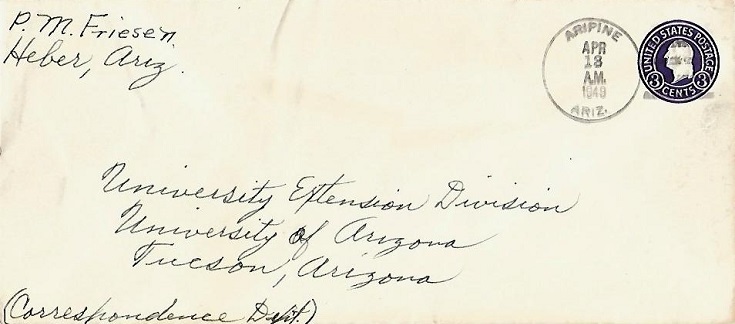 P. M. Friesen
Heber, Ariz.
ARIPINE
APR
13
A.M.
1949
ARIZ.
UNITED STATES POSTAGE
3 CENTS 3
University Extension Division
University of Arizona
Tucson, Arizona
(Correspondence Dept.)